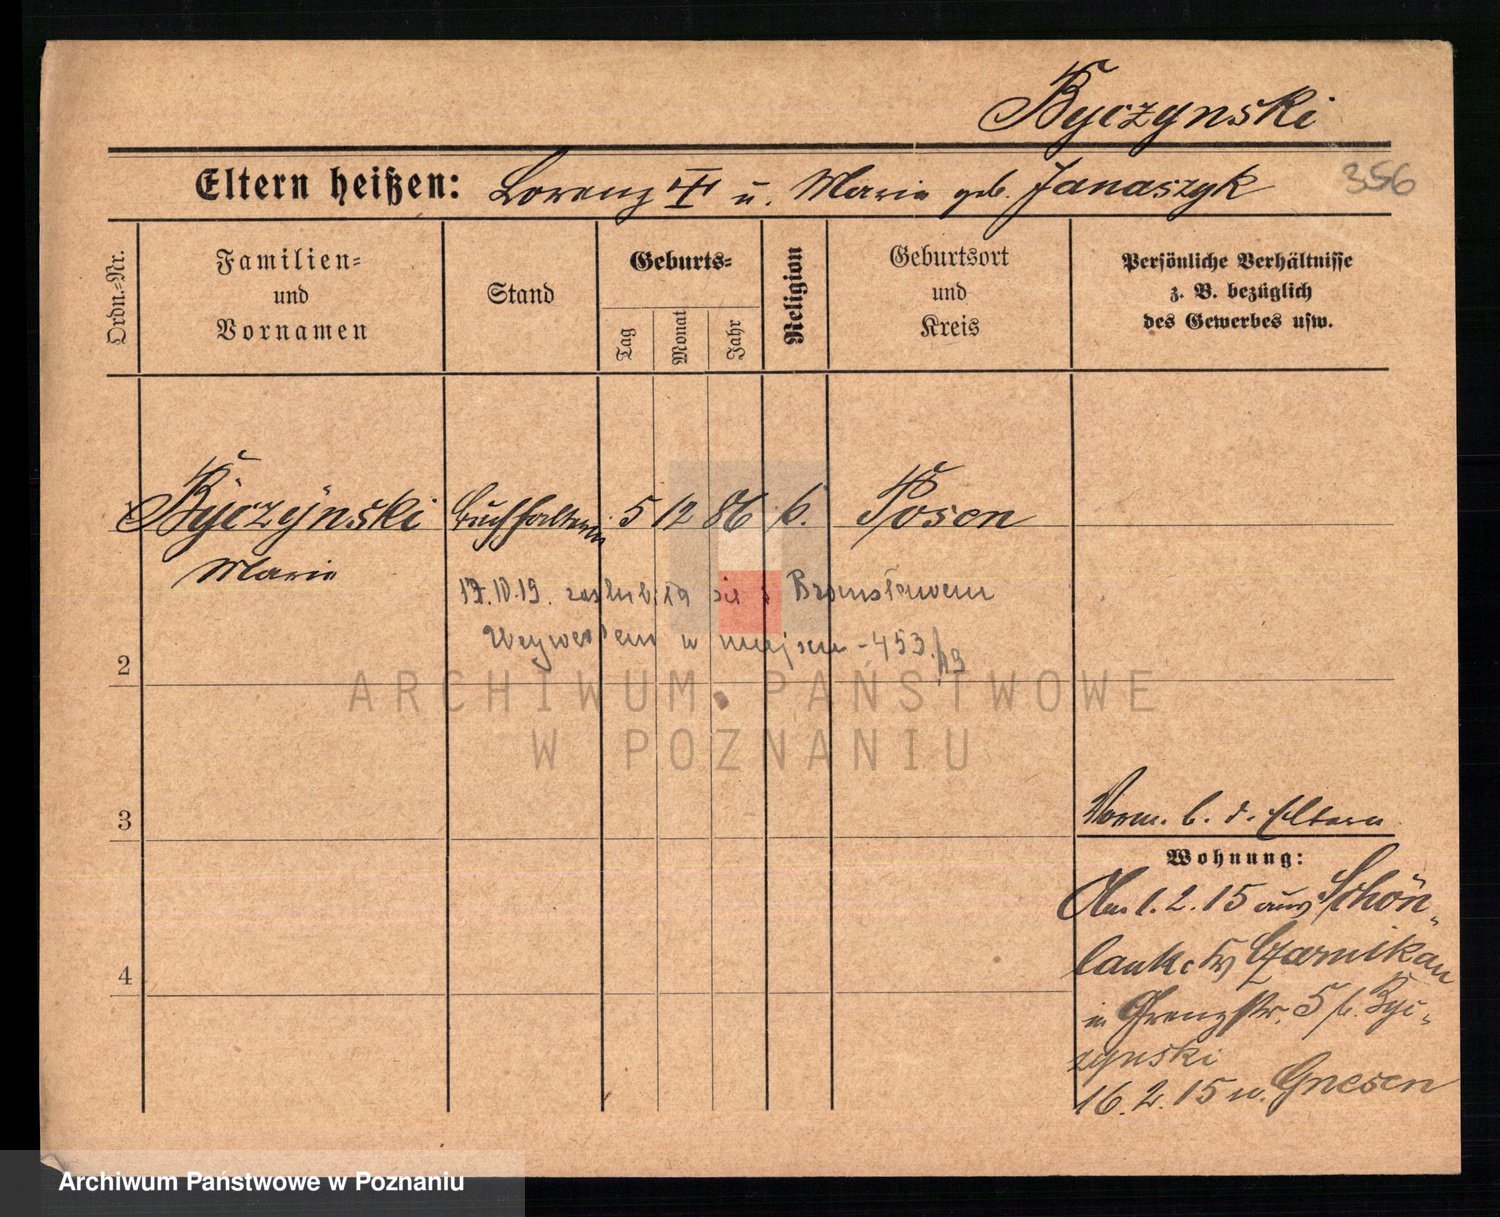 Byczynski
Eltern heißen: Lorenz u. Marie geb. Janaszyk 356
Ordn.-Nr.
Familien-
und
Vornamen
Stand
Geburts-
Tag
Monat
Jahr
Religion
Geburtsort
und
Kreis
Persönliche Verhältnisse
z. B. bezüglich
des Gewerbes usw.
1 Byczynski Buchhalterin 5 12 86 k. Posen
Marie
zaślubiła się z Bronisławem
w miejscu - 453.
2
ARCHIWUM PAŃSTWOWE
W POZNANIU
3
Vorm. b. d. Eltern
Wohnung:
Am 1. 2. 15 aus Schön-
lanke Czarnikau
in Grenzstr. 5 b. Byc-
zynski
4
16. 2. 15 n. Gnesen
Archiwum Państwowe w Poznaniu